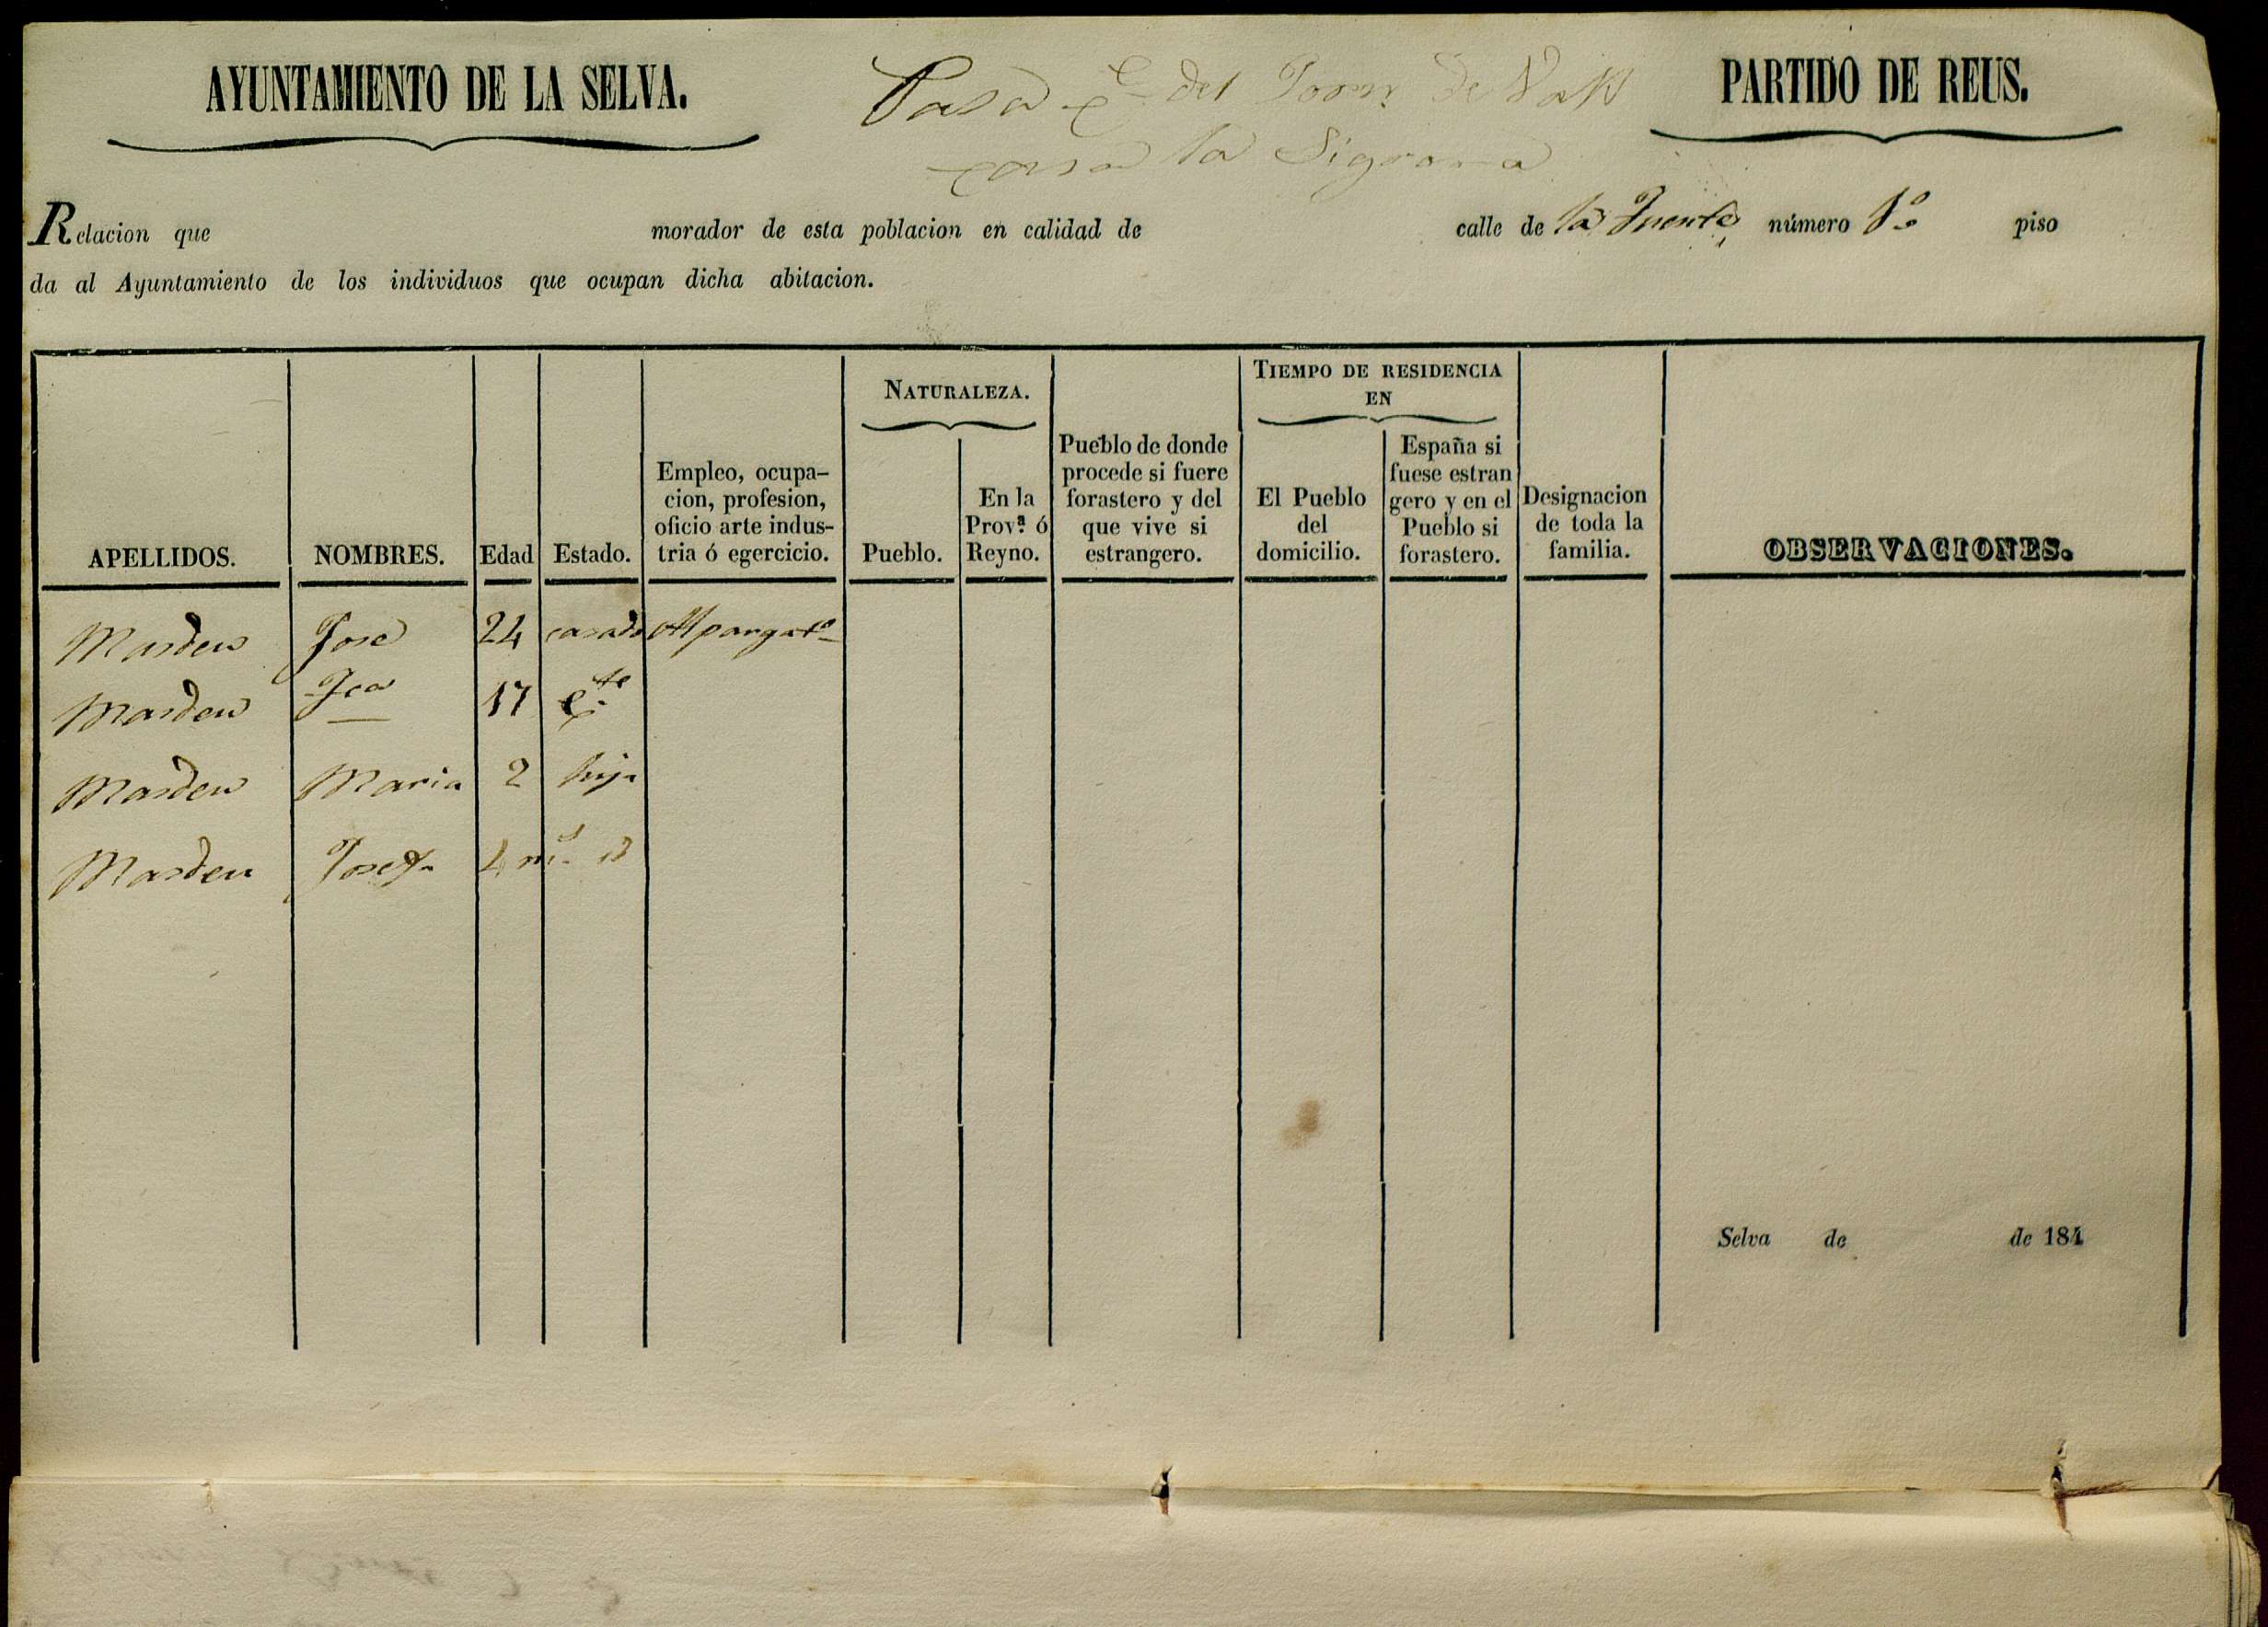 AYUNTAMIENTO DE LA SELVA.
Pasa del de Valls
PARTIDO DE REUS.
casa la
Relacion que morador de esta poblacion en calidad de calle de la Fuente número 1º piso
da al Ayuntamiento de los individuos que ocupan dicha abitacion.
NATURALEZA.
TIEMPO DE RESIDENCIA
EN
APELLIDOS.
NOMBRES.
Edad
Estado.
Empleo, ocupa-
cion, profesion,
oficio arte indus-
tria ó egercicio.
Pueblo.
En la
Prov.ª ó
Reyno.
Pueblo de donde
procede si fuere
forastero y del
que vive si
estrangero.
El Pueblo
del
domicilio.
España si
fuese estran
gero y en el
Pueblo si
forastero.
Designacion
de toda la
familia.
OBSERVACIONES.
Masdeu Jose 24 casado Alpargatº
Masdeu Fca 17 Cte
Masdeu Maria 2 hija
Masdeu Josefa 4 ms id
Selva de de 184